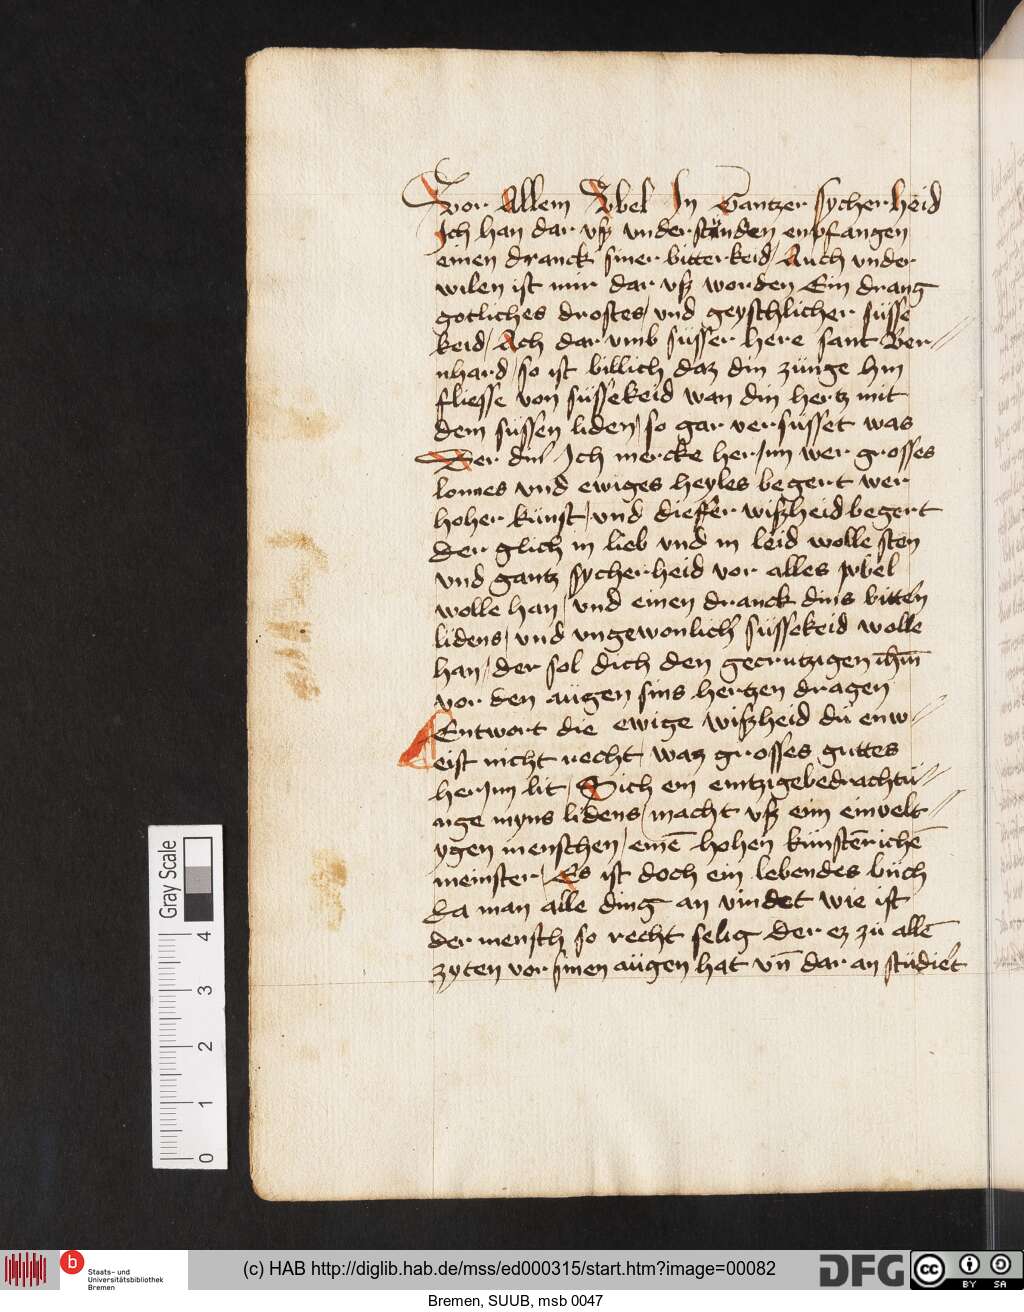 Vor Allem Vbel In Gantzer sycherheid
Ich han dar vsz vnderstunden enpfangen
einen dranck siner bitterkeid / Auch vnder
wilen ist mir dar vsz worden Ein drang
gotliches drostes / vnd geyschlicher süsse
keid / Ach dar vmb süsser here sant Ber//
nhard / so ist billich daz din zünge hin
fliesse von süssekeid wan din hertz mit
dem süssen liden / so gar versüsset was
Der din Ich mercke her Inn wer grosses
lones vnd ewiges heyles begert wer
hoher künst / vnd dieffer wiszheid begert
der glich in lieb vnd in leid wolle sten
vnd gantz sycherheid vor alles vbel
wolle han / vnd einen dranck dins bittern
lidens / vnd vngewonlich süssekeid wolle
han / der sol dich den gecrutzigen ihm̄
vor den augen sins hertzen dragen
Entwort die ewige wiszheid du enw//
eist nicht recht / waz grosses guttes
her Inn lit / Sich ein emtzigebedrachtu//
nge myns lidens / macht vsz eim einvelt//
ygen menschen / einē hohen künstēnrichē
meinster / Es ist doch ein lebendes büch
da man alle ding an vindet wie ist
der mensch so recht selig der ez zu allē
zyten vor sinen augen hat vn̄ dar an studiert
Gray Scale
4
3
2
1
0
b
Staats- und
Universitätsbibliothek
Bremen
(c) HAB http://diglib.hab.de/mss/ed000315/start.htm?image=00082
DFG
cc
BY SA
Bremen, SUUB, msb 0047